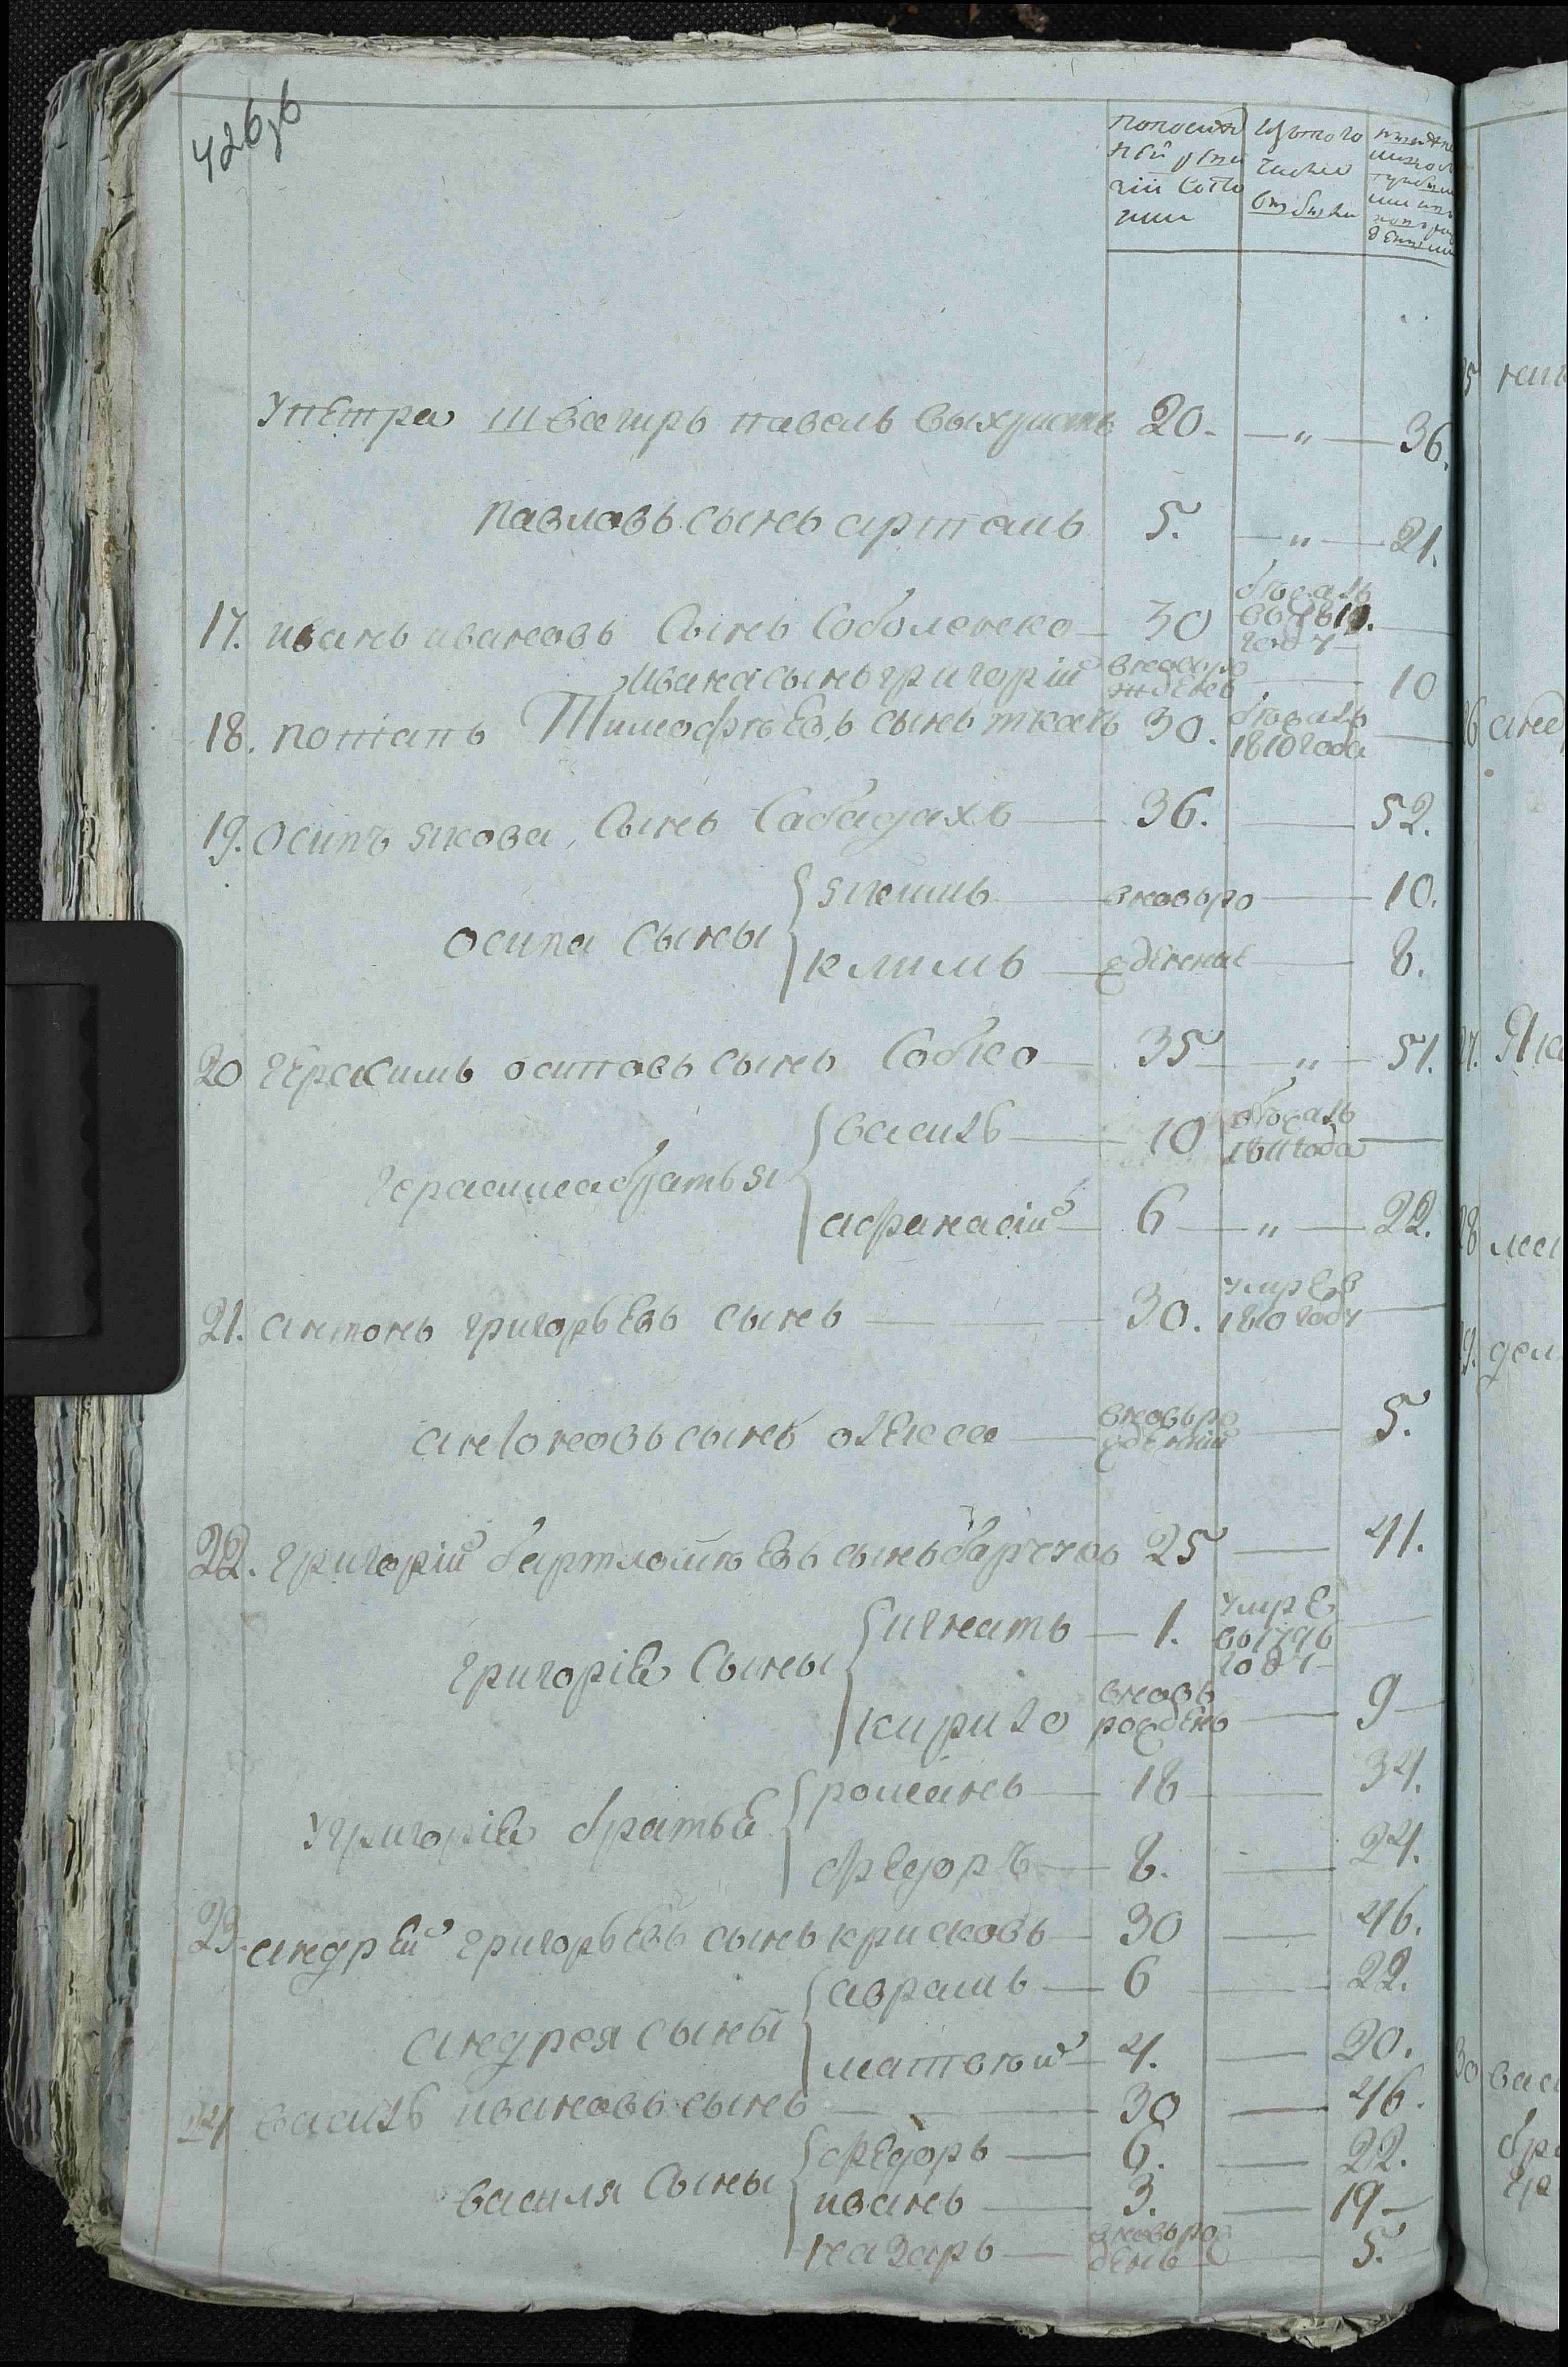 426об
По последней ревизии состояли
Из того числа выбыли
Ныне на лицо
У Петра швагиръ павелъ выхристъ 20. — „ — 36.
павловъ сынъ артомъ 5. — „ — 21.
17. иванъ ивановъ сынъ Соболенко — 30 бежалъ во 1810. году —
Ивана сынъ григорій вновьрожденъ — 10
18. потапъ Тимофѣевъ сынъ ткачъ 30. бежалъ 1810 года —
19. осипъ якова, сынъ Сабадахъ — 36. — 52.
осипа сыны { якимъ — вновьро — 10.
климъ — жденные — 8.
20 герасимъ осиповъ сынъ Собко — 35 — „ — 51.
герасима братья { василь — 10 бежалъ 1811 года —
афанасій — 6 — „ — 22.
21. антонъ григорьевъ сынъ — 30. умре в 1810 году —
антоновъ сынъ олекса — вновьрожденний — 5.
22. григорій бартломѣевъ сынъ 25 — 41.
григорія сыны { игнатъ — 1. умре во 1796 году —
кирило вновь рожденъ — 9 —
у григорія братья { романъ — 18 — 34.
федоръ — 8. — 24.
23. андрей григорьевъ сынъ крисковъ — 30 — 46.
андрея сыны { аврамъ — 6 — 22.
матвѣй — 4. — 20.
24 василь ивановъ сынъ — 30 — 46.
василя сыны { федоръ — 6. — 22.
иванъ — 3. — 19 —
назаръ — вновьрожденъ — 5.